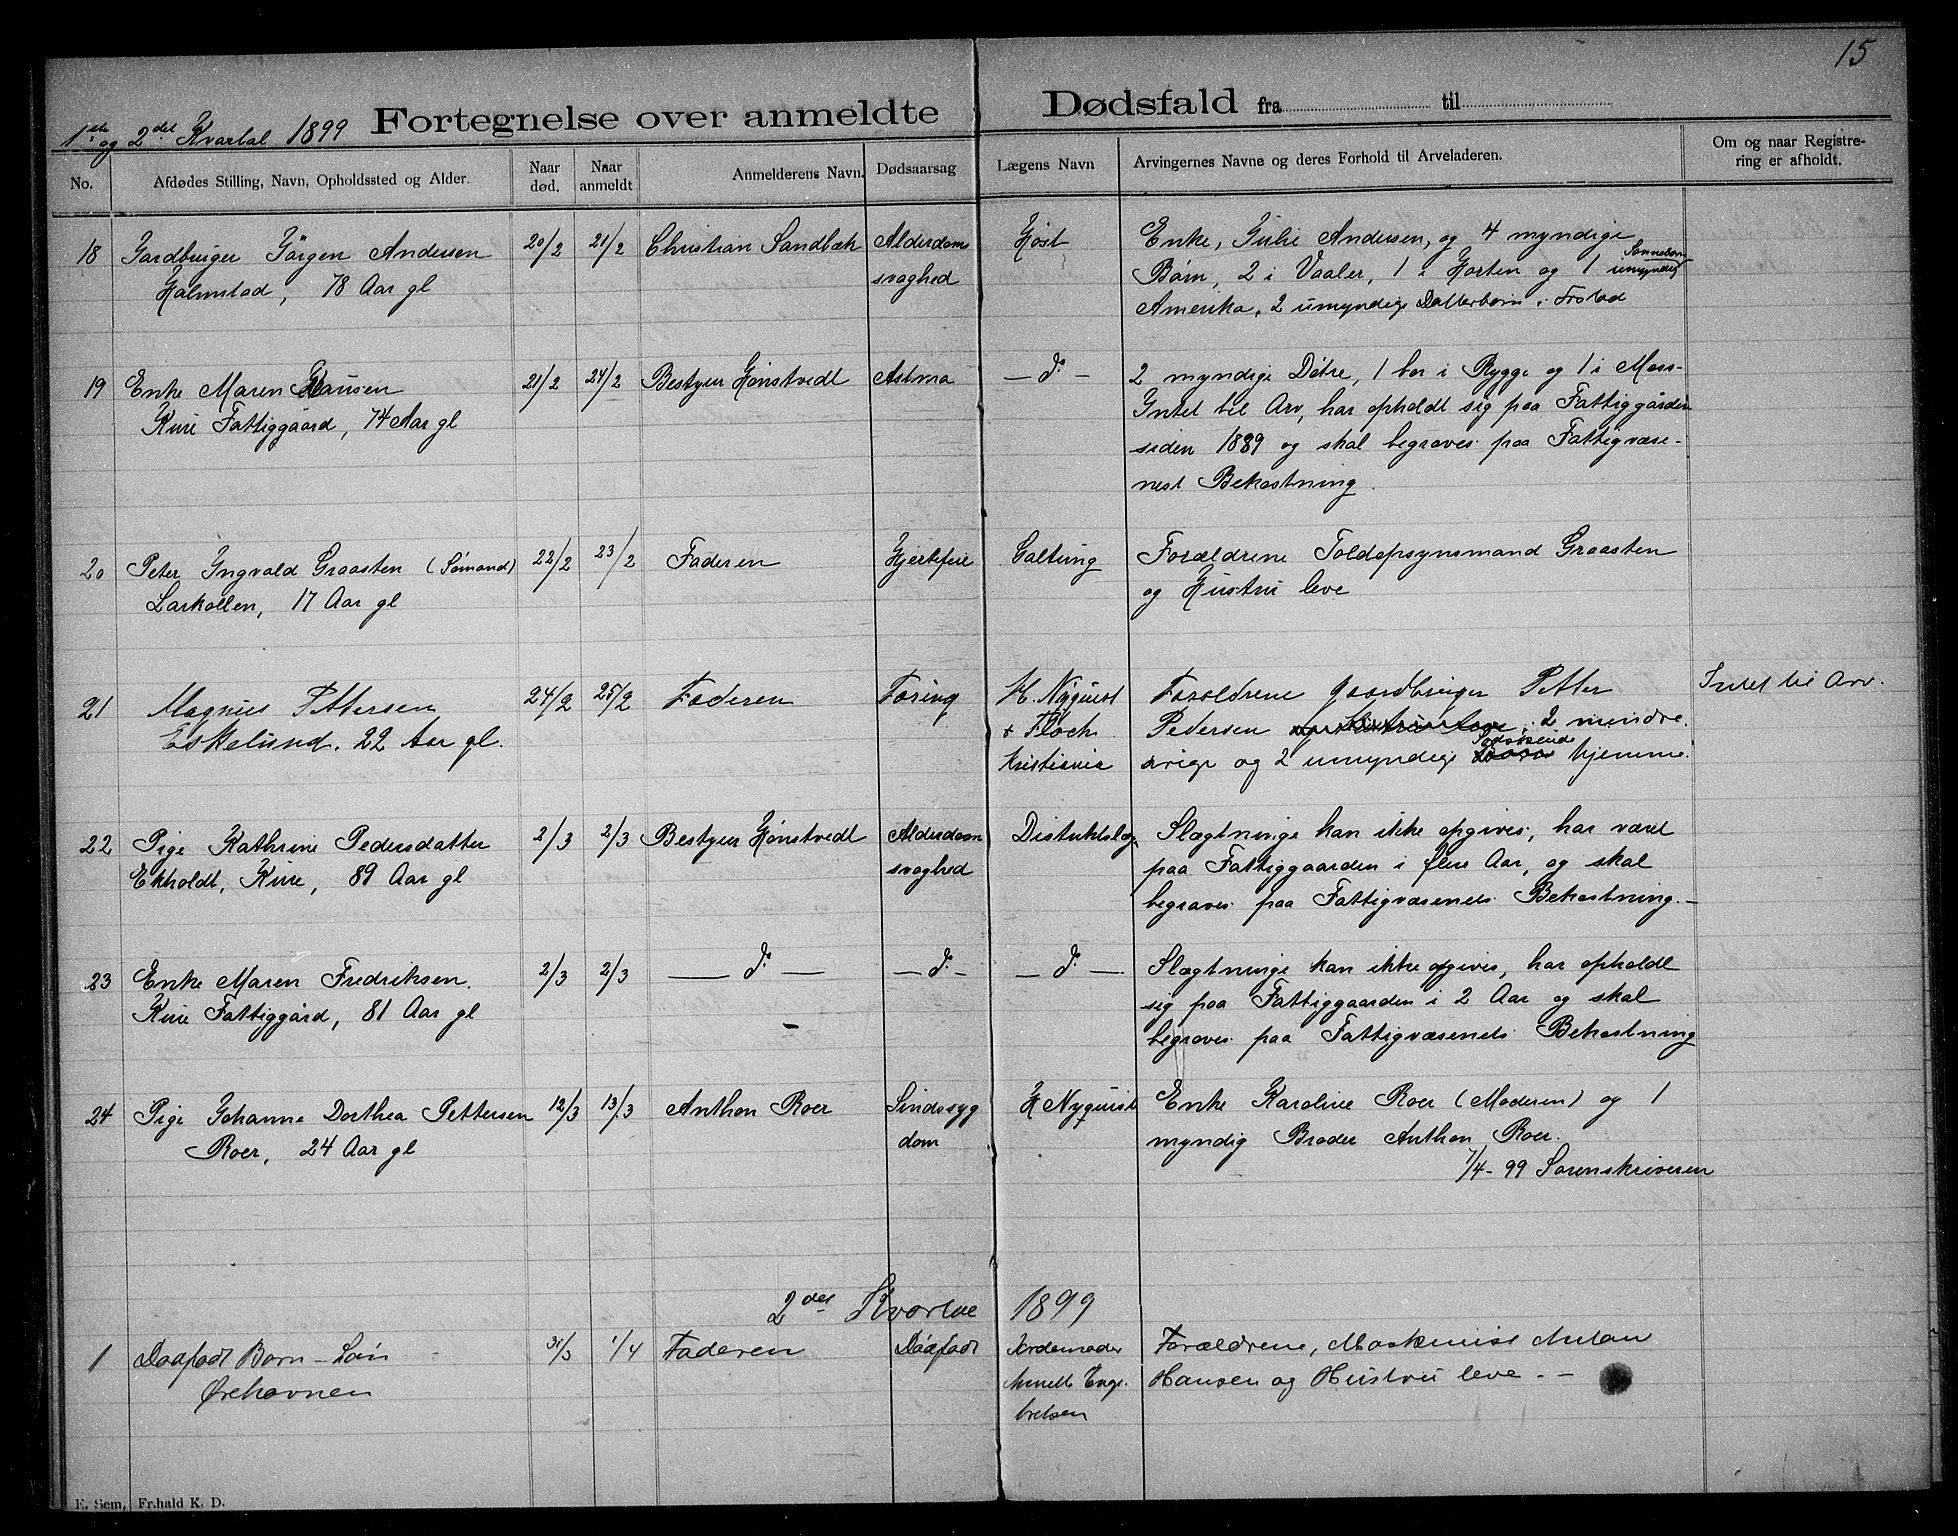 15
1ste og 2det Kvartal 1899 Fortegnelse over anmeldte Dødsfald fra til
No. Afdødes Stilling, Navn, Opholdssted og Alder. Naar død. Naar anmeldt Anmelderens Navn. Dødsaarsag Lægens Navn Arvingernes Navne og deres Forhold til Arveladeren. Om og naar Registrering er afholdt.
18 Gardbruger Jörgen Andersen 20/2 21/2 Christian Sandbæk Alderdoms Høst Enke, Julie Andersen, og 4 myndige
Halmstad, 78 Aar gl svaghed Børn, 2 i Vaaler, 1 i Horten og 1 umyndig Sønnebarn
Amerika, 2 umyndige Datterbørn i Frstad
19 Enke Maren Hansen 21/2 24/2 Bestyrer Hønstvedt Astma — d: — 2 myndige Døtre, 1 bor i Rygge og 1 i Moss-
Kure Fattiggaard, 74 Aar gl Intet til Arv, har opholdt sig paa Fattiggården
siden 1889 og skal begraves paa Fattigvæse-
nest Bekostning.
20 Peter Ingvald Graasten (Sømand) 22/2 23/2 Faderen Hjertefeil Galtung Forældrene Toldopsynsmand Graasten
Larkollen, 17 Aar gl og Hustru leve
21 Magnus Pettersen 24/2 25/2 Faderen Tæring H. Nyquist Forældrene gaardbruger Petter Intet til Arv.
Eskelund. 22 Aar gl. + Floch Pedersen og Hustru leve, 2 mindre.
Kristiania arige og 2 umyndige Sødskende hjemme.
22 Pige Kathrine Pedersdatter 2/3 2/3 Bestyrer Hønstvedt Alderdom Distriktslæg. Slægtninge kan ikke opgives, har været
Ekholdt, Kure, 89 Aar gl svaghed paa Fattiggaarden i flere Aar, og skal
begraves paa Fattigvæsenets Bekostning.—
23 Enke Maren Fredriksen. 2/3 2/3 — d: — — d: — — d: — Slægtninge kan ikke opgives, har opholdt
Kure Fattiggård, 81 Aar gl sig paa Fattiggaarden i 2 Aar og skal
begraves paa Fattigvæsenets Bekostning
24 Pige Johanne Dorthea Pettersen 12/3 13/3 Anthon Roer Sindssyg H Nyquist Enke Karoline Roer (Moderen) og 1
Roer, 24 Aar gl dom myndig Broder Anthon Roer.
7/4-99 Sorenskriveren
2det Kvartal 1899
1 Daafødt Barn - Søn 31/3 1/4 Faderen Daafødt Jordemoder Forældrene, Maskinist Anton
Ørehavnen Annette Enge- Hansen og Hustru leve. -
bretsen
E. Sem, Fr.hald K. D.